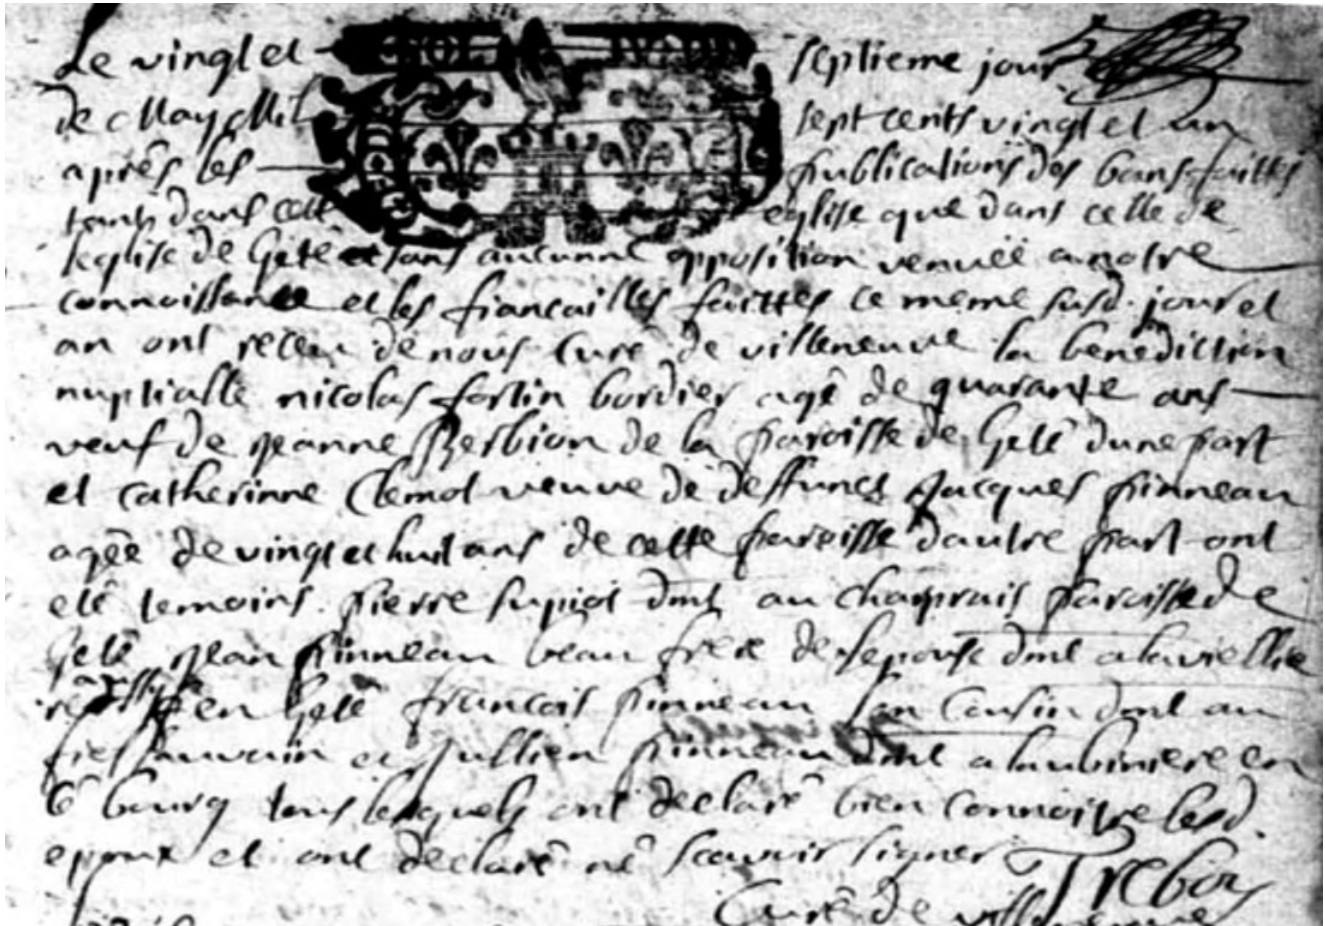 Le vingt et septieme jour
de May Mil sept cents vingt et un
après les publications des bans faittes
tant dans cette eglise que dans celle de
leglise de Geté et sans aucunne opposition venuë a notre
connoissance et les fiancailles faittes ce meme susd. jour et
an ont receu de nous Curé de villeneuve la benediction
nuptialle nicolas fortin bordier agé de quarante ans
veuf de jeanne de la paroisse de Geté dune part
et catherinne Clemot veuve de deffunct Jacques pinneau
agée de vingt et huit ans de cette paroisse dautre part ont
eté temoins pierre supiot dmt au champrais paroisse de
Geté jean pinneau beau frere de lepouse dmt a la viellie
en Geté francois pinneau son Cousin dmt au
fief sauvain et jullien pinneau dmt a laubiniere en
ce bourg tous lesquels ont declaré bien connoitre lesd.
epoux et ont declaré ne scavoir signer Treboy
Curé de villeneuve